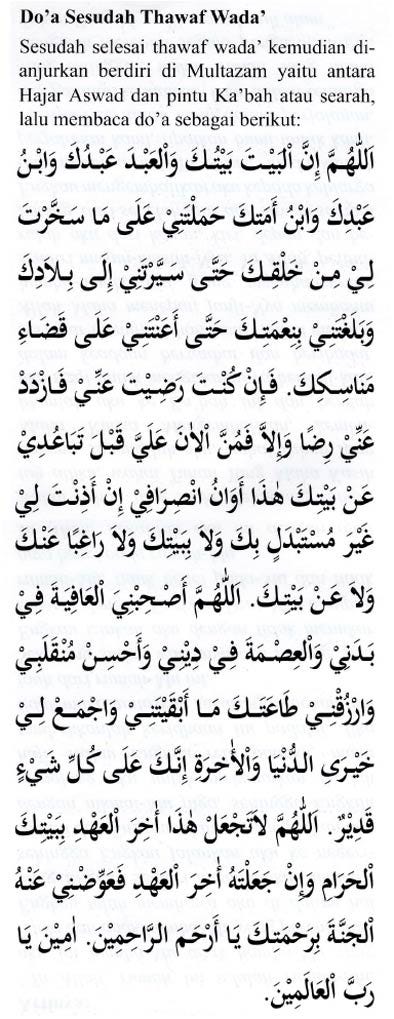 Do'a Sesudah Thawaf Wada'
Sesudah selesai thawaf wada' kemudian di-
anjurkan berdiri di Multazam yaitu antara
Hajar Aswad dan pintu Ka'bah atau searah,
lalu membaca do'a sebagai berikut:
اَللّٰهُمَّ إِنَّ الْبَيْتَ بَيْتُكَ وَالْعَبْدَ عَبْدُكَ وَابْنُ
عَبْدِكَ وَابْنُ أَمَتِكَ حَمَلْتَنِيْ عَلَى مَا سَخَّرْتَ
لِيْ مِنْ خَلْقِكَ حَتَّى سَيَّرْتَنِيْ إِلَى بِلاَدِكَ
وَبَلَّغْتَنِيْ بِنِعْمَتِكَ حَتَّى أَعَنْتَنِيْ عَلَى قَضَاءِ
مَنَاسِكِكَ. فَإِنْ كُنْتَ رَضِيْتَ عَنِّيْ فَازْدَدْ
عَنِّيْ رِضًا وَإِلاَّ فَمُنَّ الْأٰنَ عَلَيَّ قَبْلَ تَبَاعُدِيْ
عَنْ بَيْتِكَ هٰذَا أَوَانُ انْصِرَافِيْ إِنْ أَذِنْتَ لِيْ
غَيْرَ مُسْتَبْدَلٍ بِكَ وَلاَ بِبَيْتِكَ وَلاَ رَاغِبًا عَنْكَ
وَلاَ عَنْ بَيْتِكَ. اَللّٰهُمَّ أَصْحِبْنِيَ الْعَافِيَةَ فِيْ
بَدَنِيْ وَالْعِصْمَةَ فِيْ دِيْنِيْ وَأَحْسِنْ مُنْقَلَبِيْ
وَارْزُقْنِيْ طَاعَتَكَ مَا أَبْقَيْتَنِيْ وَاجْمَعْ لِيْ
خَيْرَىِ الدُّنْيَا وَالْأٰخِرَةِ إِنَّكَ عَلَى كُلِّ شَيْءٍ
قَدِيْرٌ. اَللّٰهُمَّ لاَتَجْعَلْ هٰذَا أٰخِرَ الْعَهْدِ بِبَيْتِكَ
الْحَرَامِ وَإِنْ جَعَلْتَهُ أٰخِرَ الْعَهْدِ فَعَوِّضْنِيْ عَنْهُ
الْجَنَّةَ بِرَحْمَتِكَ يَا أَرْحَمَ الرَّاحِمِيْنَ. اٰمِيْنَ يَا
رَبَّ الْعَالَمِيْنَ.